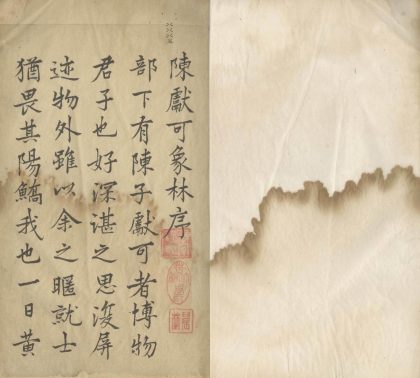 陳獻可象林序
部下有陳子獻可者博物
君子也好深諶之思湥屏
迹物外雖以余之暱就士
猶畏其陽鱎我也一日黄